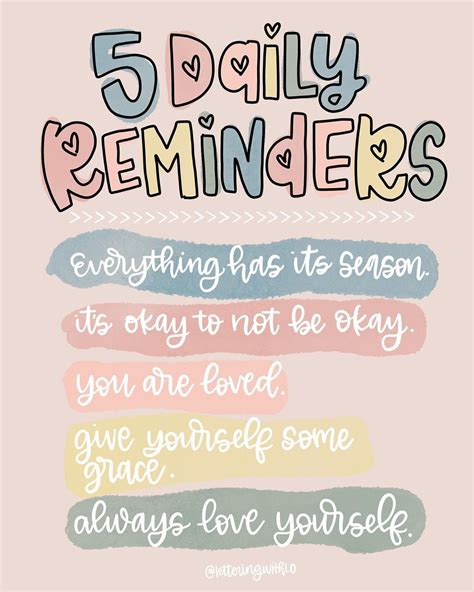 5 Daily
REMINDERS
>>>>>>>>>>>>>>>>>>>>>>>>>>>>
everything has its season.
it's okay to not be okay.
you are loved.
give yourself some
grace.
always love yourself.
@letteringwithlo